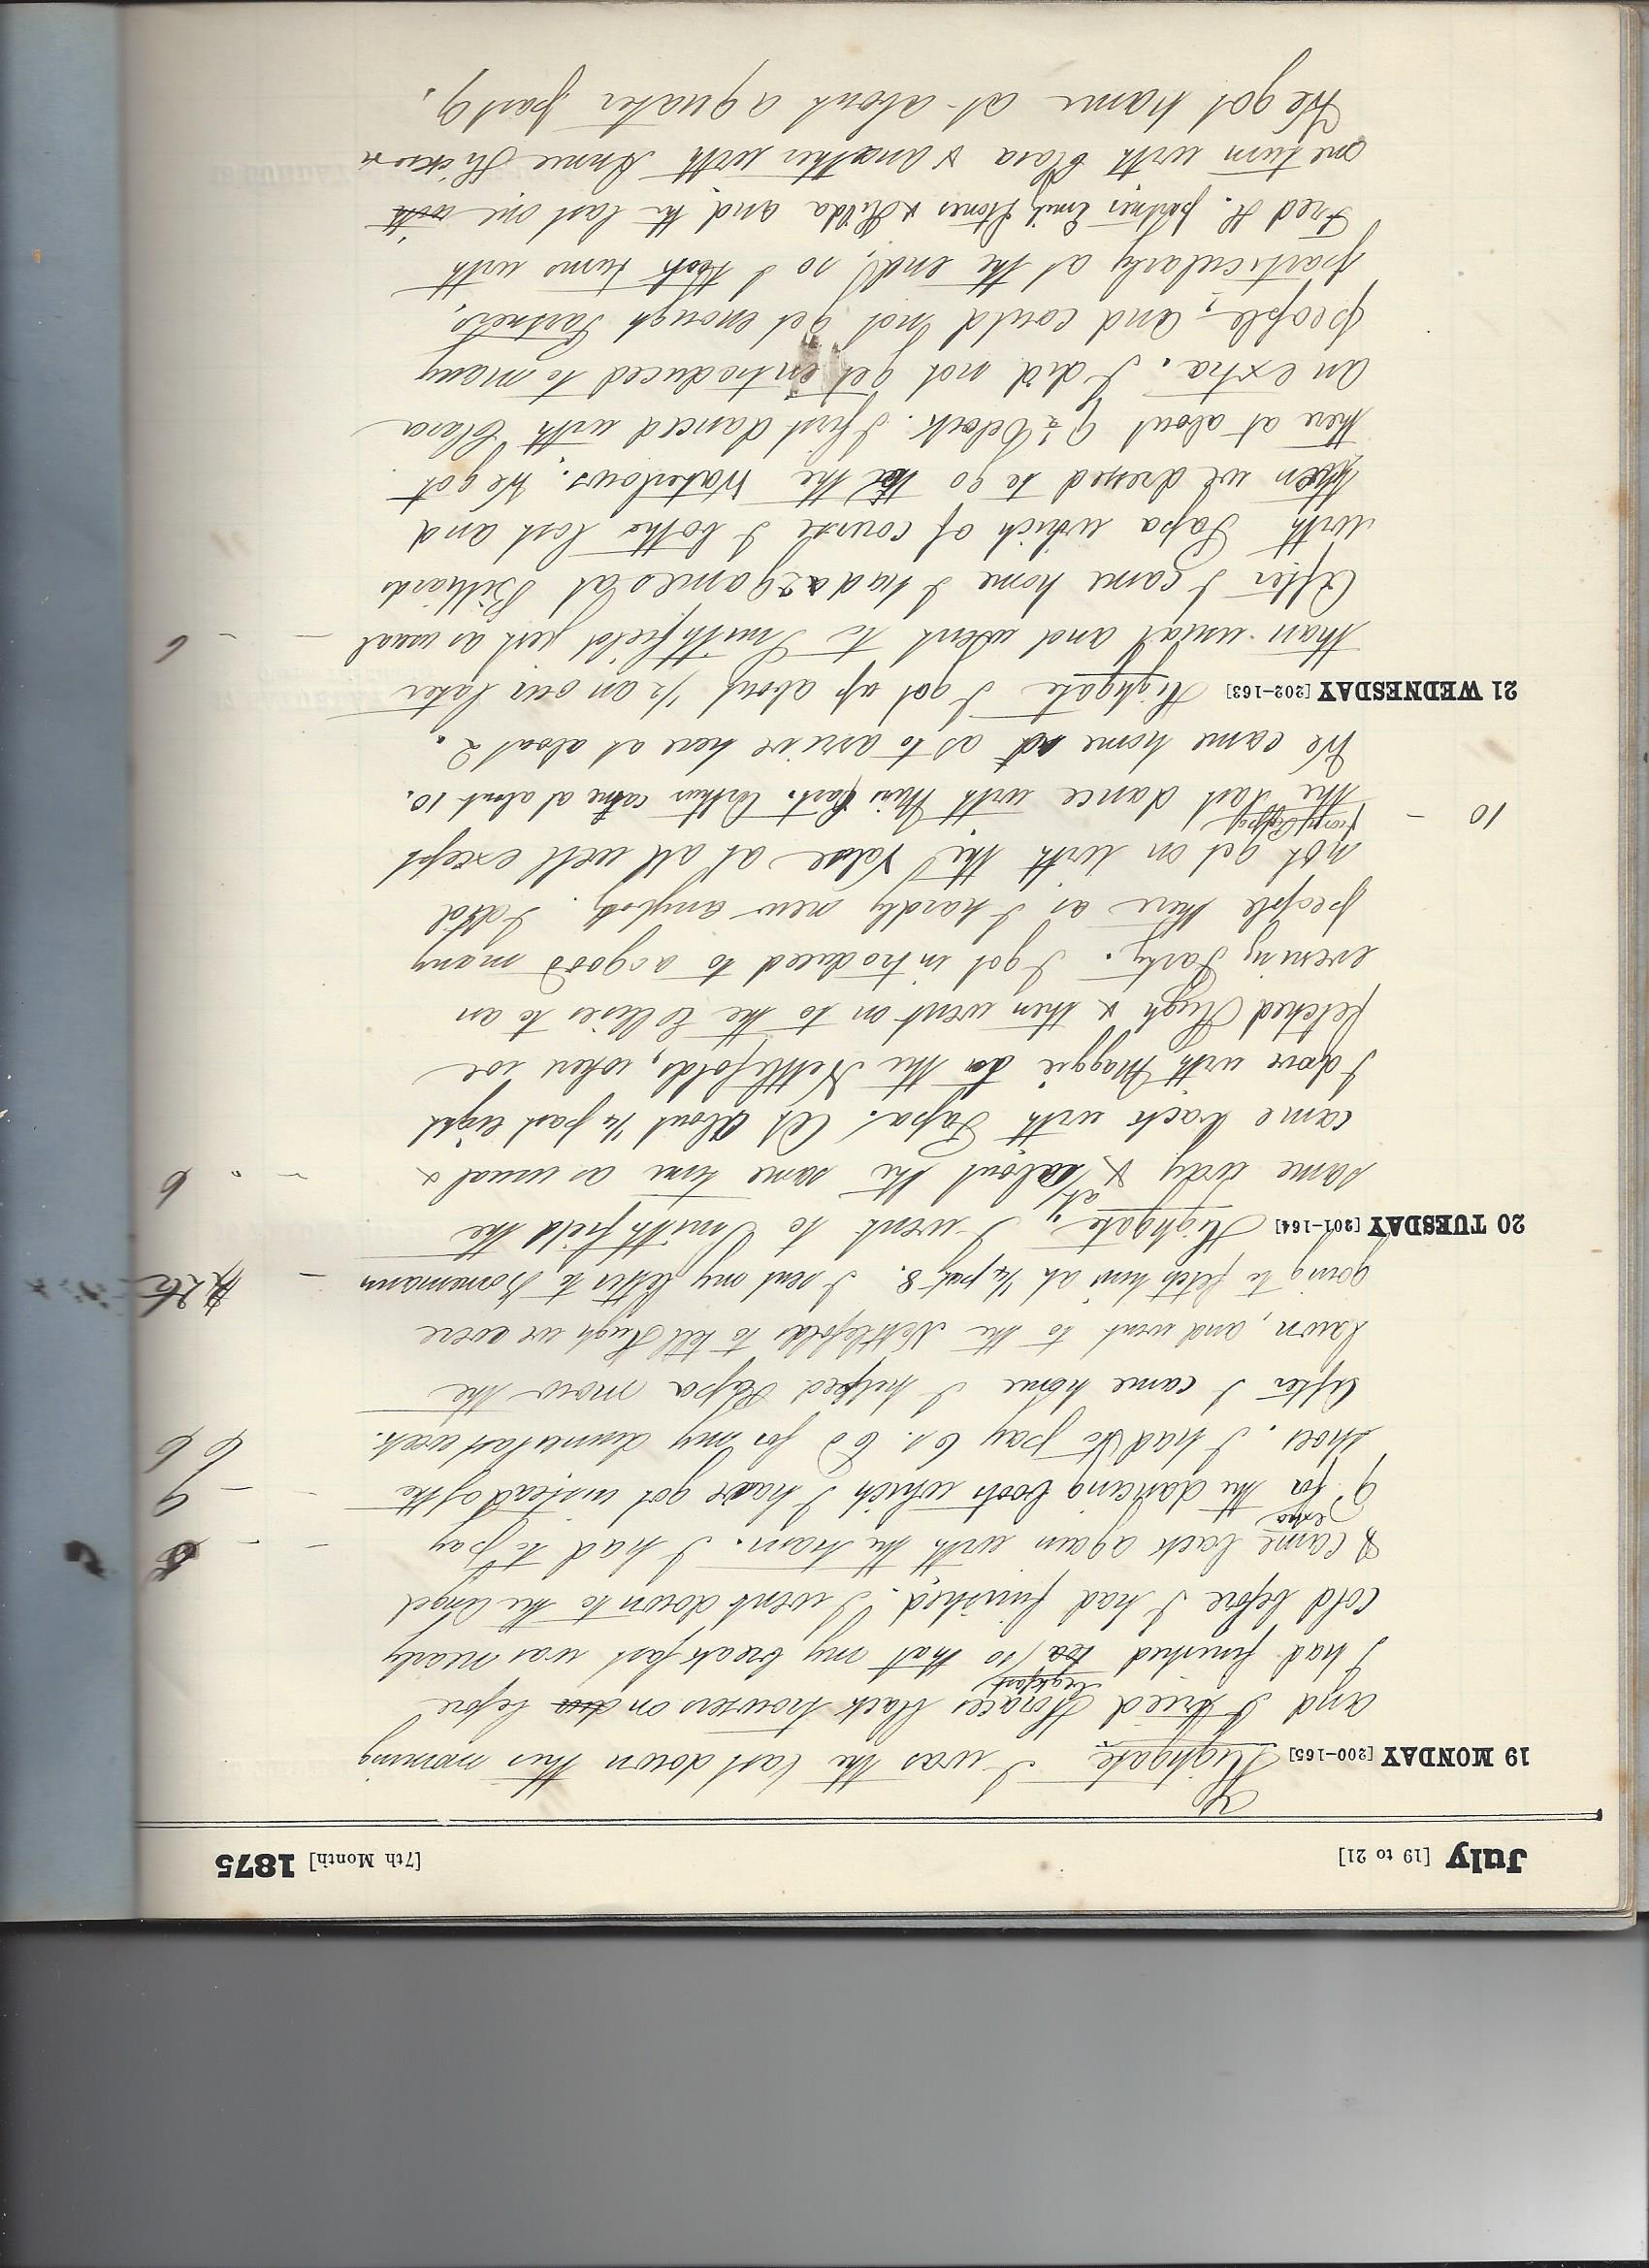 July [19 to 21] [7th Month] 1875
19 MONDAY [200-165] Highgate I was the last down this morning
and I tried Horaces black trowsers on before
breakfast
I had finished tea, so that my breakfast was nearly
cold before I had finished. I went down to the Angel
& came back again with the tram. I had to pay
extra
9 for the dancing boots which I have got instead of the - - 9
shoes. I had to pay 6s. 6d for my dinner last week. 6 6
After I came home I helped Papa mow the
lawn, and went to the Nettlefolds to tell Hugh we were
going to fetch him at 1/4 past 8. I sent my letter to Bornemann -
20 TUESDAY [201-164] Highgate, I went to Smithfield the
at
same way & about the same time as usual & - " 6
came back with Papa. At about 1/4 past eight
I drove with Maggie to the Nettlefolds, when we
fetched Hugh & then went on to the Ellises to an
evening Party. I got introduced to a good many
people there as I hardly new anybody. I did
not get on with the Valse at all well except
the last dance with Miss Part. Arthur came at about 10. 10 -
We came home at as to arrive here at about 2.
21 WEDNESDAY [202-163] Highgate I got up about 1/2 an our later
than usual and went to Smithfield just as usual - - 6
After I came home I had a 2 games at Billiards
with Papa which of course I bothe lost and
then we dressed to go to the Waterlows. We got
there at about 9 1/2 Oclock. I first danced with Clara
an extra. I did not get entroduced to many
people, and could not get enough Partners,
particularly at the end, so I took turns with
Fred H. partners Emily Stones & Hilda and the last one with
one turn with Clara & another with Annie Hickson
We got home at about a quater past 9.